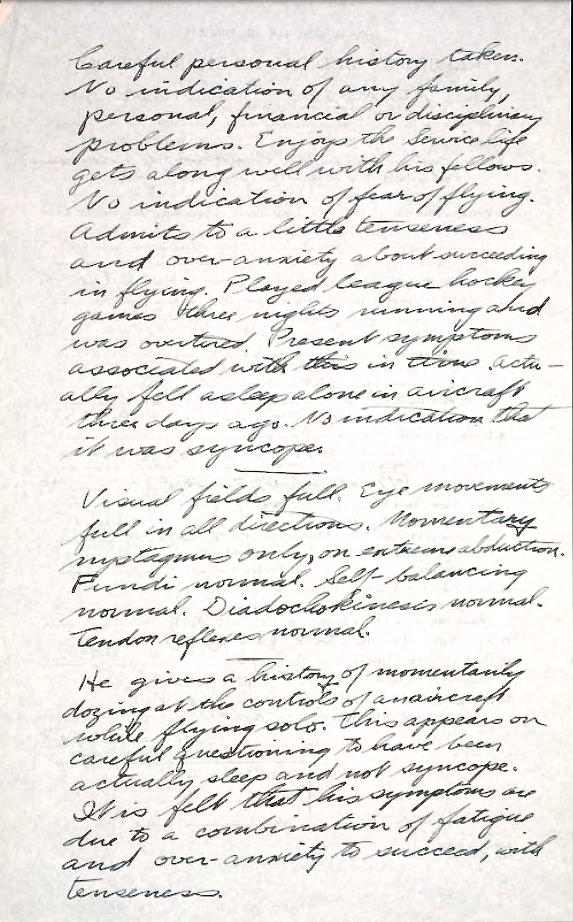 Careful personal history taken.
No indication of any family,
personal, financial or disciplinary
problems. Enjoys the Service life
gets along well with his fellows.
No indication of fear of flying.
Admits to a little tenseness
and over-anxiety about succeeding
in flying. Played league hockey
games three nights running and
was overtired. Present symptoms
associated with this in time. Actu-
ally fell asleep alone in aircraft
three days ago. No indication that
it was syncope.
Visual fields full. Eye movements
full in all directions. Momentary
nystagmus only, on extreme abduction.
Fundi normal. Self-balancing
normal. Diadochokinesis normal.
Tendon reflexes normal.
He gives a history of momentarily
dozing at the controls of an aircraft
while flying solo. This appears on
careful questioning to have been
actually sleep and not syncope.
It is felt that his symptoms are
due to a combination of fatigue
and over-anxiety to succeed, with
tenseness.